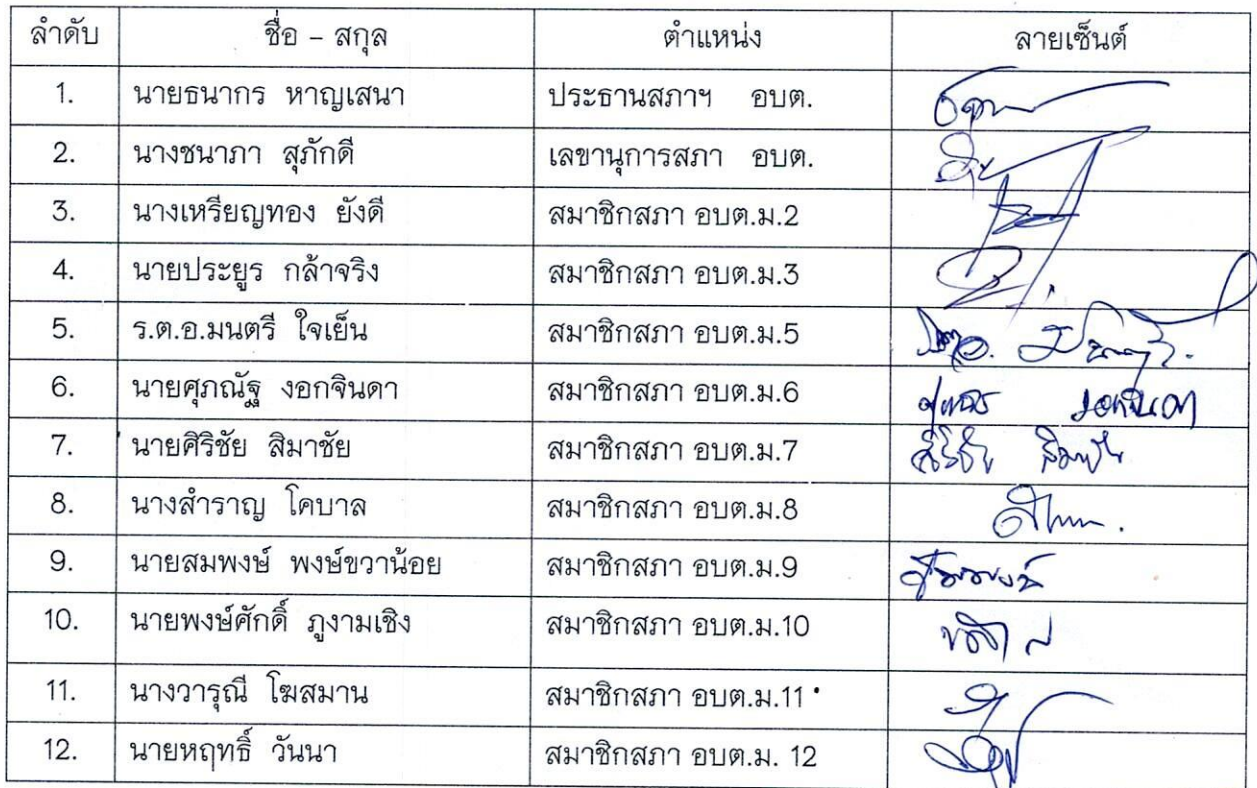 ลำดับ ชื่อ – สกุล ตำแหน่ง ลายเซ็นต์
1. นายธนากร หาญเสนา ประธานสภาฯ อบต.
2. นางชนาภา สุภักดี เลขานุการสภา อบต.
3. นางเหรียญทอง ยังดี สมาชิกสภา อบต.ม.2
4. นายประยูร กล้าจริง สมาชิกสภา อบต.ม.3
5. ร.ต.อ.มนตรี ใจเย็น สมาชิกสภา อบต.ม.5
6. นายศุภณัฐ งอกจินดา สมาชิกสภา อบต.ม.6
7. นายศิริชัย สิมาชัย สมาชิกสภา อบต.ม.7
8. นางสำราญ โคบาล สมาชิกสภา อบต.ม.8
9. นายสมพงษ์ พงษ์ขวาน้อย สมาชิกสภา อบต.ม.9
10. นายพงษ์ศักดิ์ ภูงามเชิง สมาชิกสภา อบต.ม.10
11. นางวารุณี โฆสมาน สมาชิกสภา อบต.ม.11
12. นายหฤทธิ์ วันนา สมาชิกสภา อบต.ม. 12